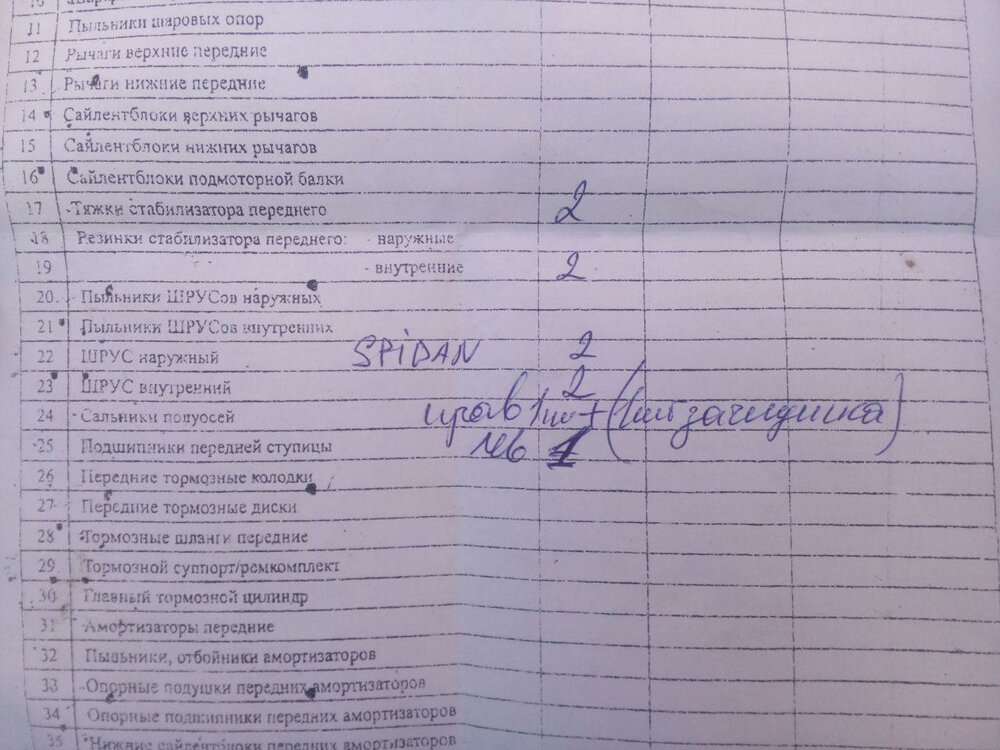 10
11 Пыльники шаровых опор
12 Рычаги верхние передние
13 Рычаги нижние передние
14 Сайлентблоки верхних рычагов
15 Сайлентблоки нижних рычагов
16 Сайлентблоки подмоторной балки
17 Тяжки стабилизатора переднего 2
18 Резинки стабилизатора переднего: - наружные
19 - внутренние 2
20 Пыльники ШРУСов наружных
21 Пыльники ШРУСов внутренних
22 ШРУС наружный SPIDAN 2
23 ШРУС внутренний 2
24 Сальники полуосей прав 1шт + (1шт задчика)
25 Подшипники передней ступицы лев 1
26 Передние тормозные колодки
27 Передние тормозные диски
28 Тормозные шланги передние
29 Тормозной суппорт/ремкомплект
30 Главный тормозной цилиндр
31 Амортизаторы передние
32 Пыльники, отбойники амортизаторов
33 Опорные подушки передних амортизаторов
34 Опорные подшипники передних амортизаторов
35 Нижние сайлентблоки передних амортизаторов